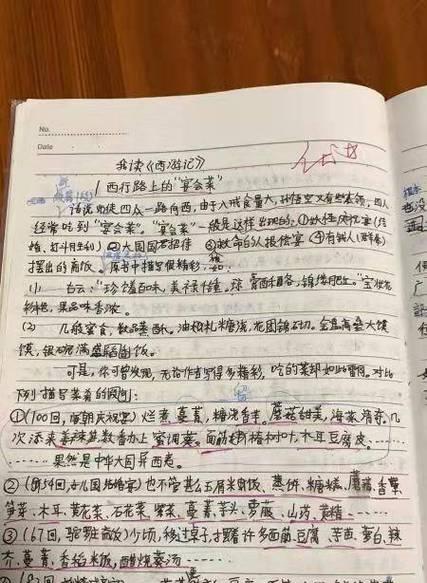 No.
Date
我读《西游记》
1 西行路上的"宴会菜"
话说师徒四人一路向西，由于八戒食量大，孙悟空又有些本领，四人
经常吃到"宴会菜"。"宴会菜"一般是这样出现的：①妖怪庆贺宴（结
婚、打斗胜利）②大国国君招待 ③救命的人报偿宴 ④有钱人
摆出的斋饭。原书中描写很精彩，
(1) 有云："珍馐百味，美禄千钟，琼膏酥酪，锦缕肥红。"宝妆花
彩艳，果品味香浓。
(2) 几般蜜食，数品蒸酥。油札糖浇，花团锦砌。金盘高垒大馒
馍，银碗满盛稻饭。
可是，你可曾发现，无论作者写得多精彩，吃的菜却如此雷同。对比
下列描写菜肴的原句：
①(100回，唐朝庆祝宴) 烂煮蔓菁，糖浇香芋。蘑菇甜美，海菜清奇。几
次添来姜辣笋，数番办上蜜调葵。面筋椿树叶，木耳豆腐皮……
……果然是中华大国异西夷。
②(第54回，女儿国结婚宴) 也不管甚么玉屑米饭、蒸饼、糖糕、蘑菇、香蕈、
笋芽、木耳、黄花菜、石花菜、紫菜、蔓菁、芋头、萝菔、山药、黄精……
③(67回，驼罗庄斋饭) 少顷，移过桌子，摆着许多面筋、豆腐、芋苗、萝白、辣
芥、蔓菁、香稻米饭，醋烧葵汤……